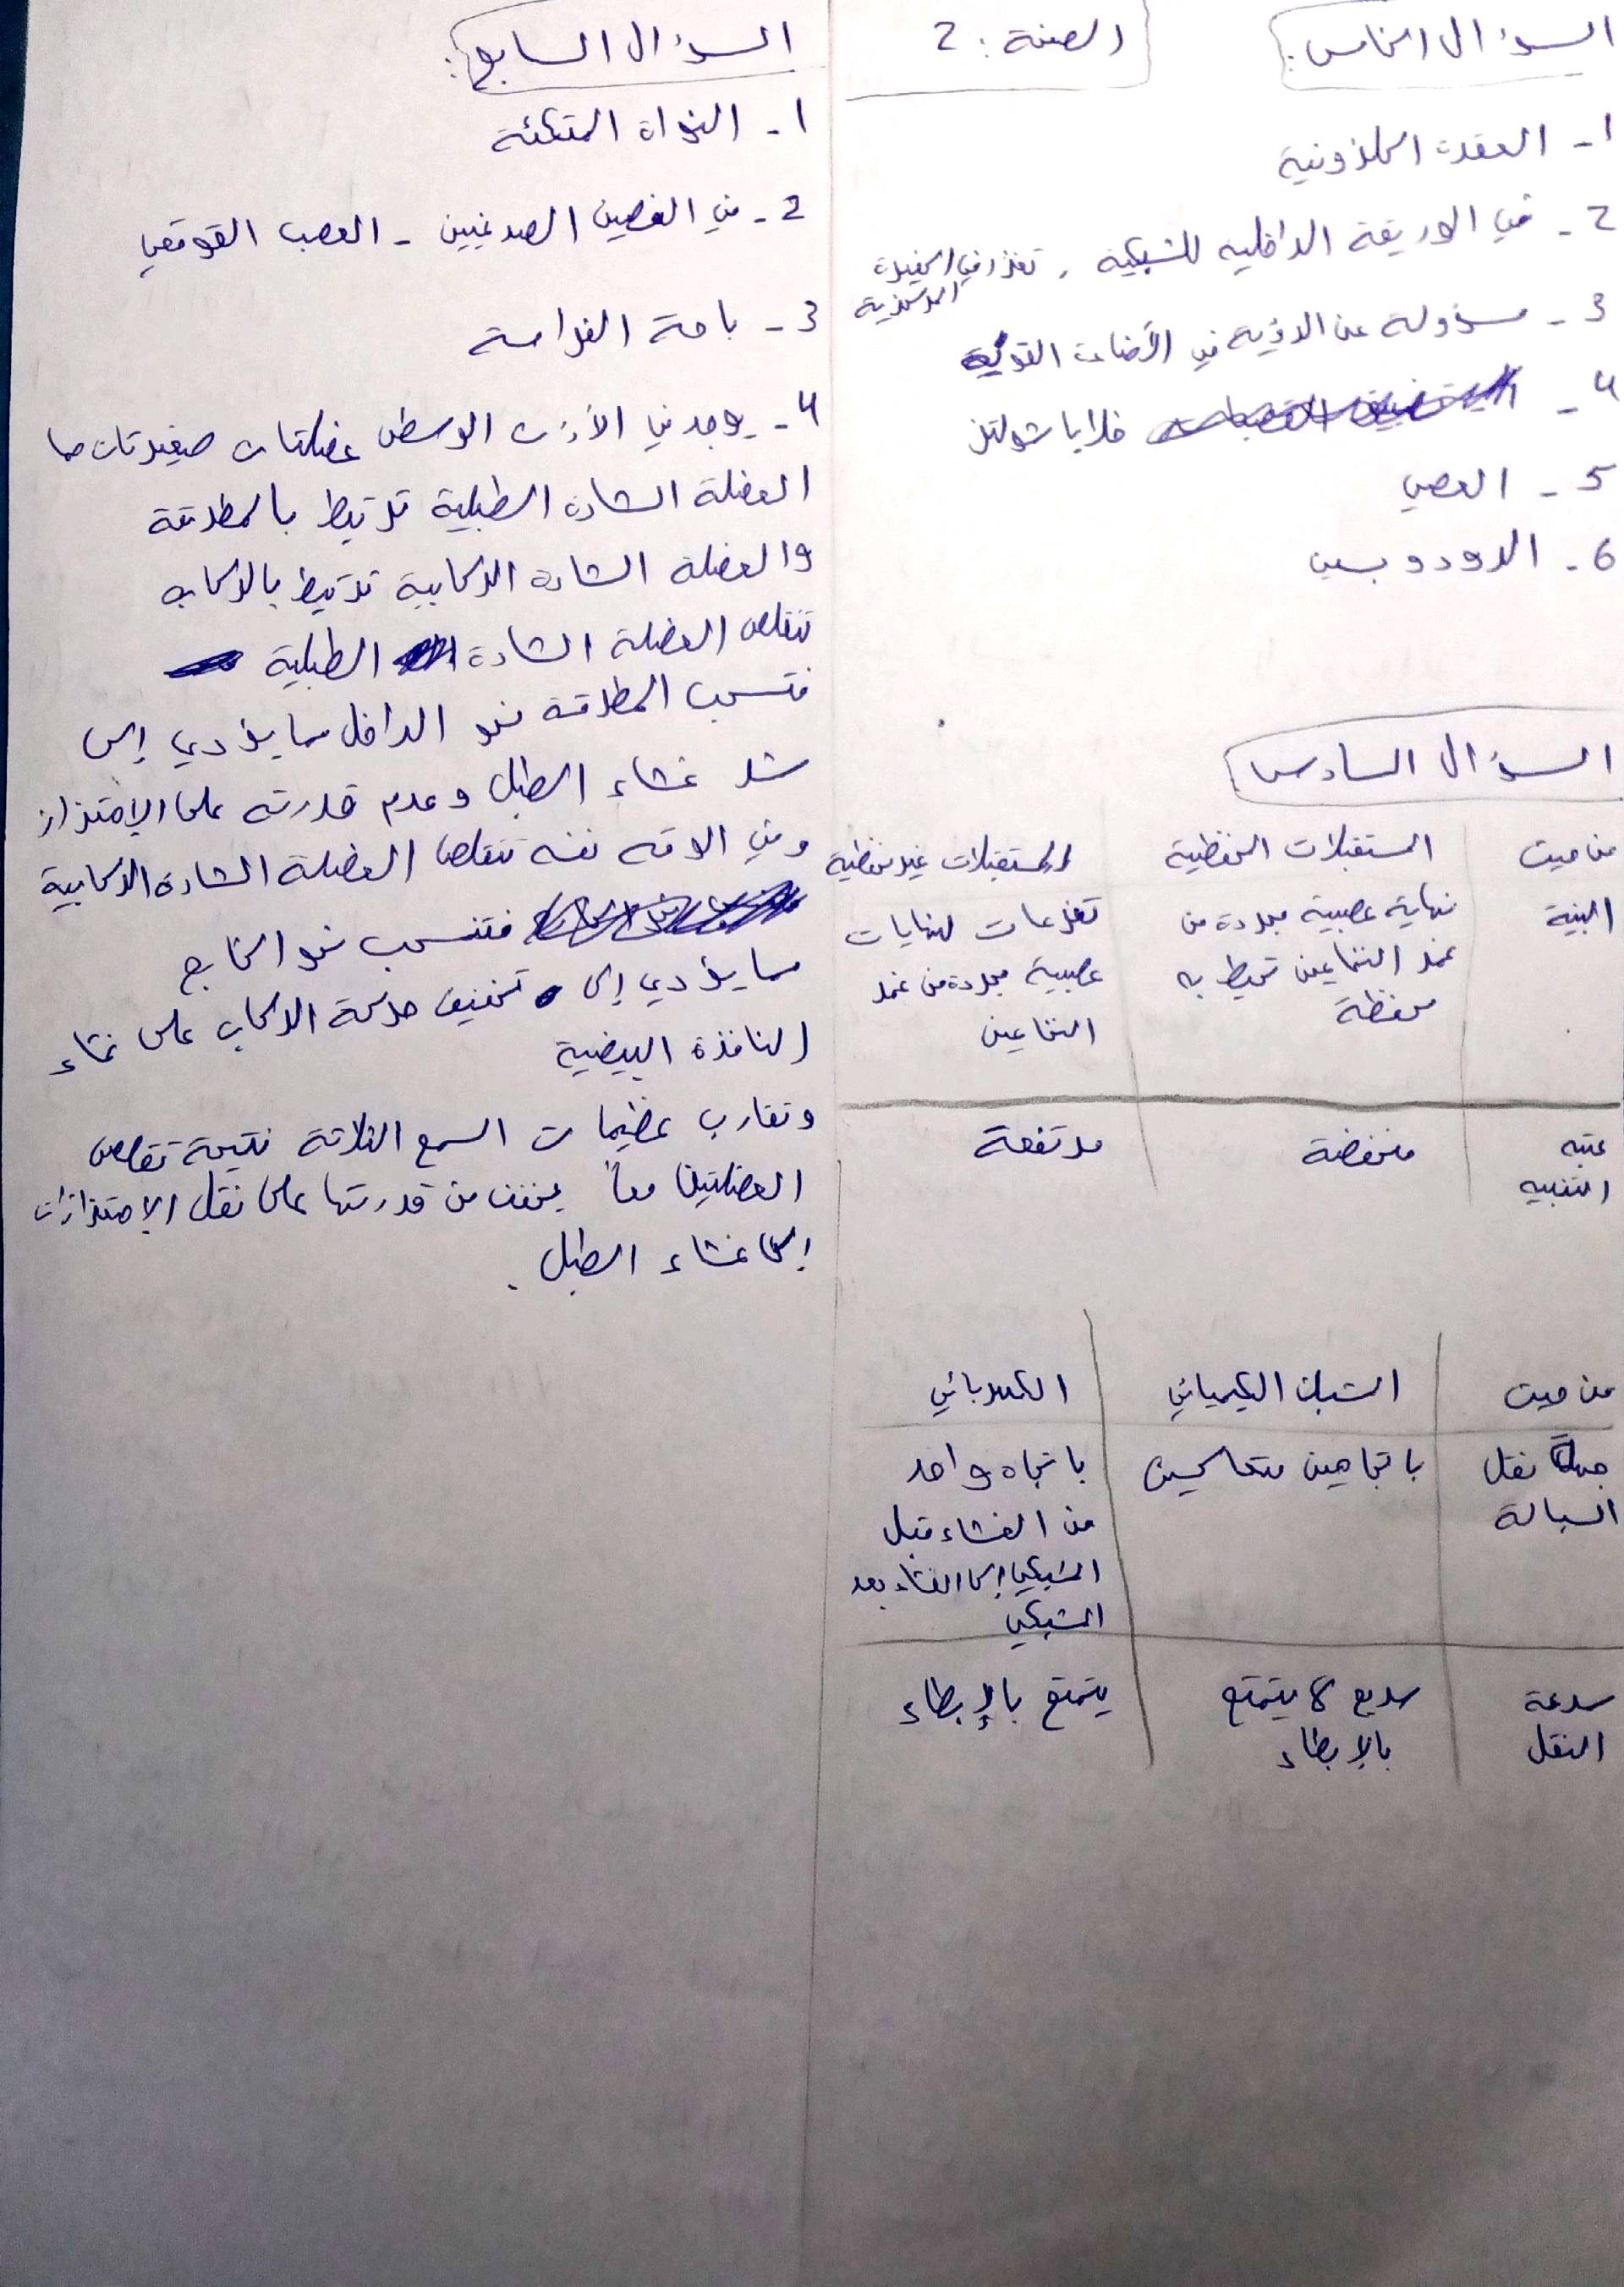 السؤال الخامس:
الصفحة: 2
1- العقدة الحلزونية
2- في الوريقة الداخلية للشبكية، تغزر في الحفيرة
المركزية
3- مسؤولة عن الرؤية في الأضاءة القوية
4- خلايا شولتز
5- العصبي
6- الرودوبسين
السؤال السادس
من حيث | المستقبلات المحفظية | المستقبلات غير محفظية
البنية | نهاية عصبية مجردة من | تفرعات لنهايات
غمد النخاعين تحيط به | عصبية مجردة من غمد
محفظة | النخاعين
عتبة | منخفضة | مرتفعة
التنبيه
من حيث | المشبك الكيميائي | الكهربائي
جهة نقل | باتجاهين متعاكسين | باتجاه واحد
السيالة | من الغشاء قبل
المشبكي إلى الغشاء بعد
المشبكي
سرعة | سريع لا يتمتع | يتمتع بالإبطاء
النقل | بالإبطاء
السؤال السابع:
1- النواة المتكئة
2- في الفصين الصدغيين - العصب القوقعي
3- باحة الفراسة
4- يوجد في الأذن الوسطى عضلتان صغيرتان هما
العضلة الشادة الطبلية ترتبط بالمطرقة
والعضلة الشادة الركابية ترتبط بالركاب
تتقلص العضلة الشادة الطبلية
فتسحب المطرقة نحو الداخل مما يؤدي إلى
شد غشاء الطبل وعدم قدرته على الاهتزاز
وفي الوقت نفسه تتقلص العضلة الشادة الركابية
فتنسحب نحو الخارج
مما يؤدي إلى تخفيف حركة الركاب على غشاء
النافذة البيضية
وتقارب عظيمات السمع الثلاثة نتيجة تقلص
العضلتين معاً يخفف من قدرتها على نقل الاهتزازات
إلى غشاء الطبل.